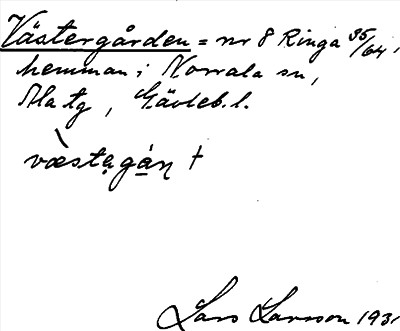 Västergården = nr 8 Ringa 35/64,
hemman i Norrala sn,
Ala tg, Gävleb. l.
væ̀stạgá̠ɳ †
Lars Larsson 1931